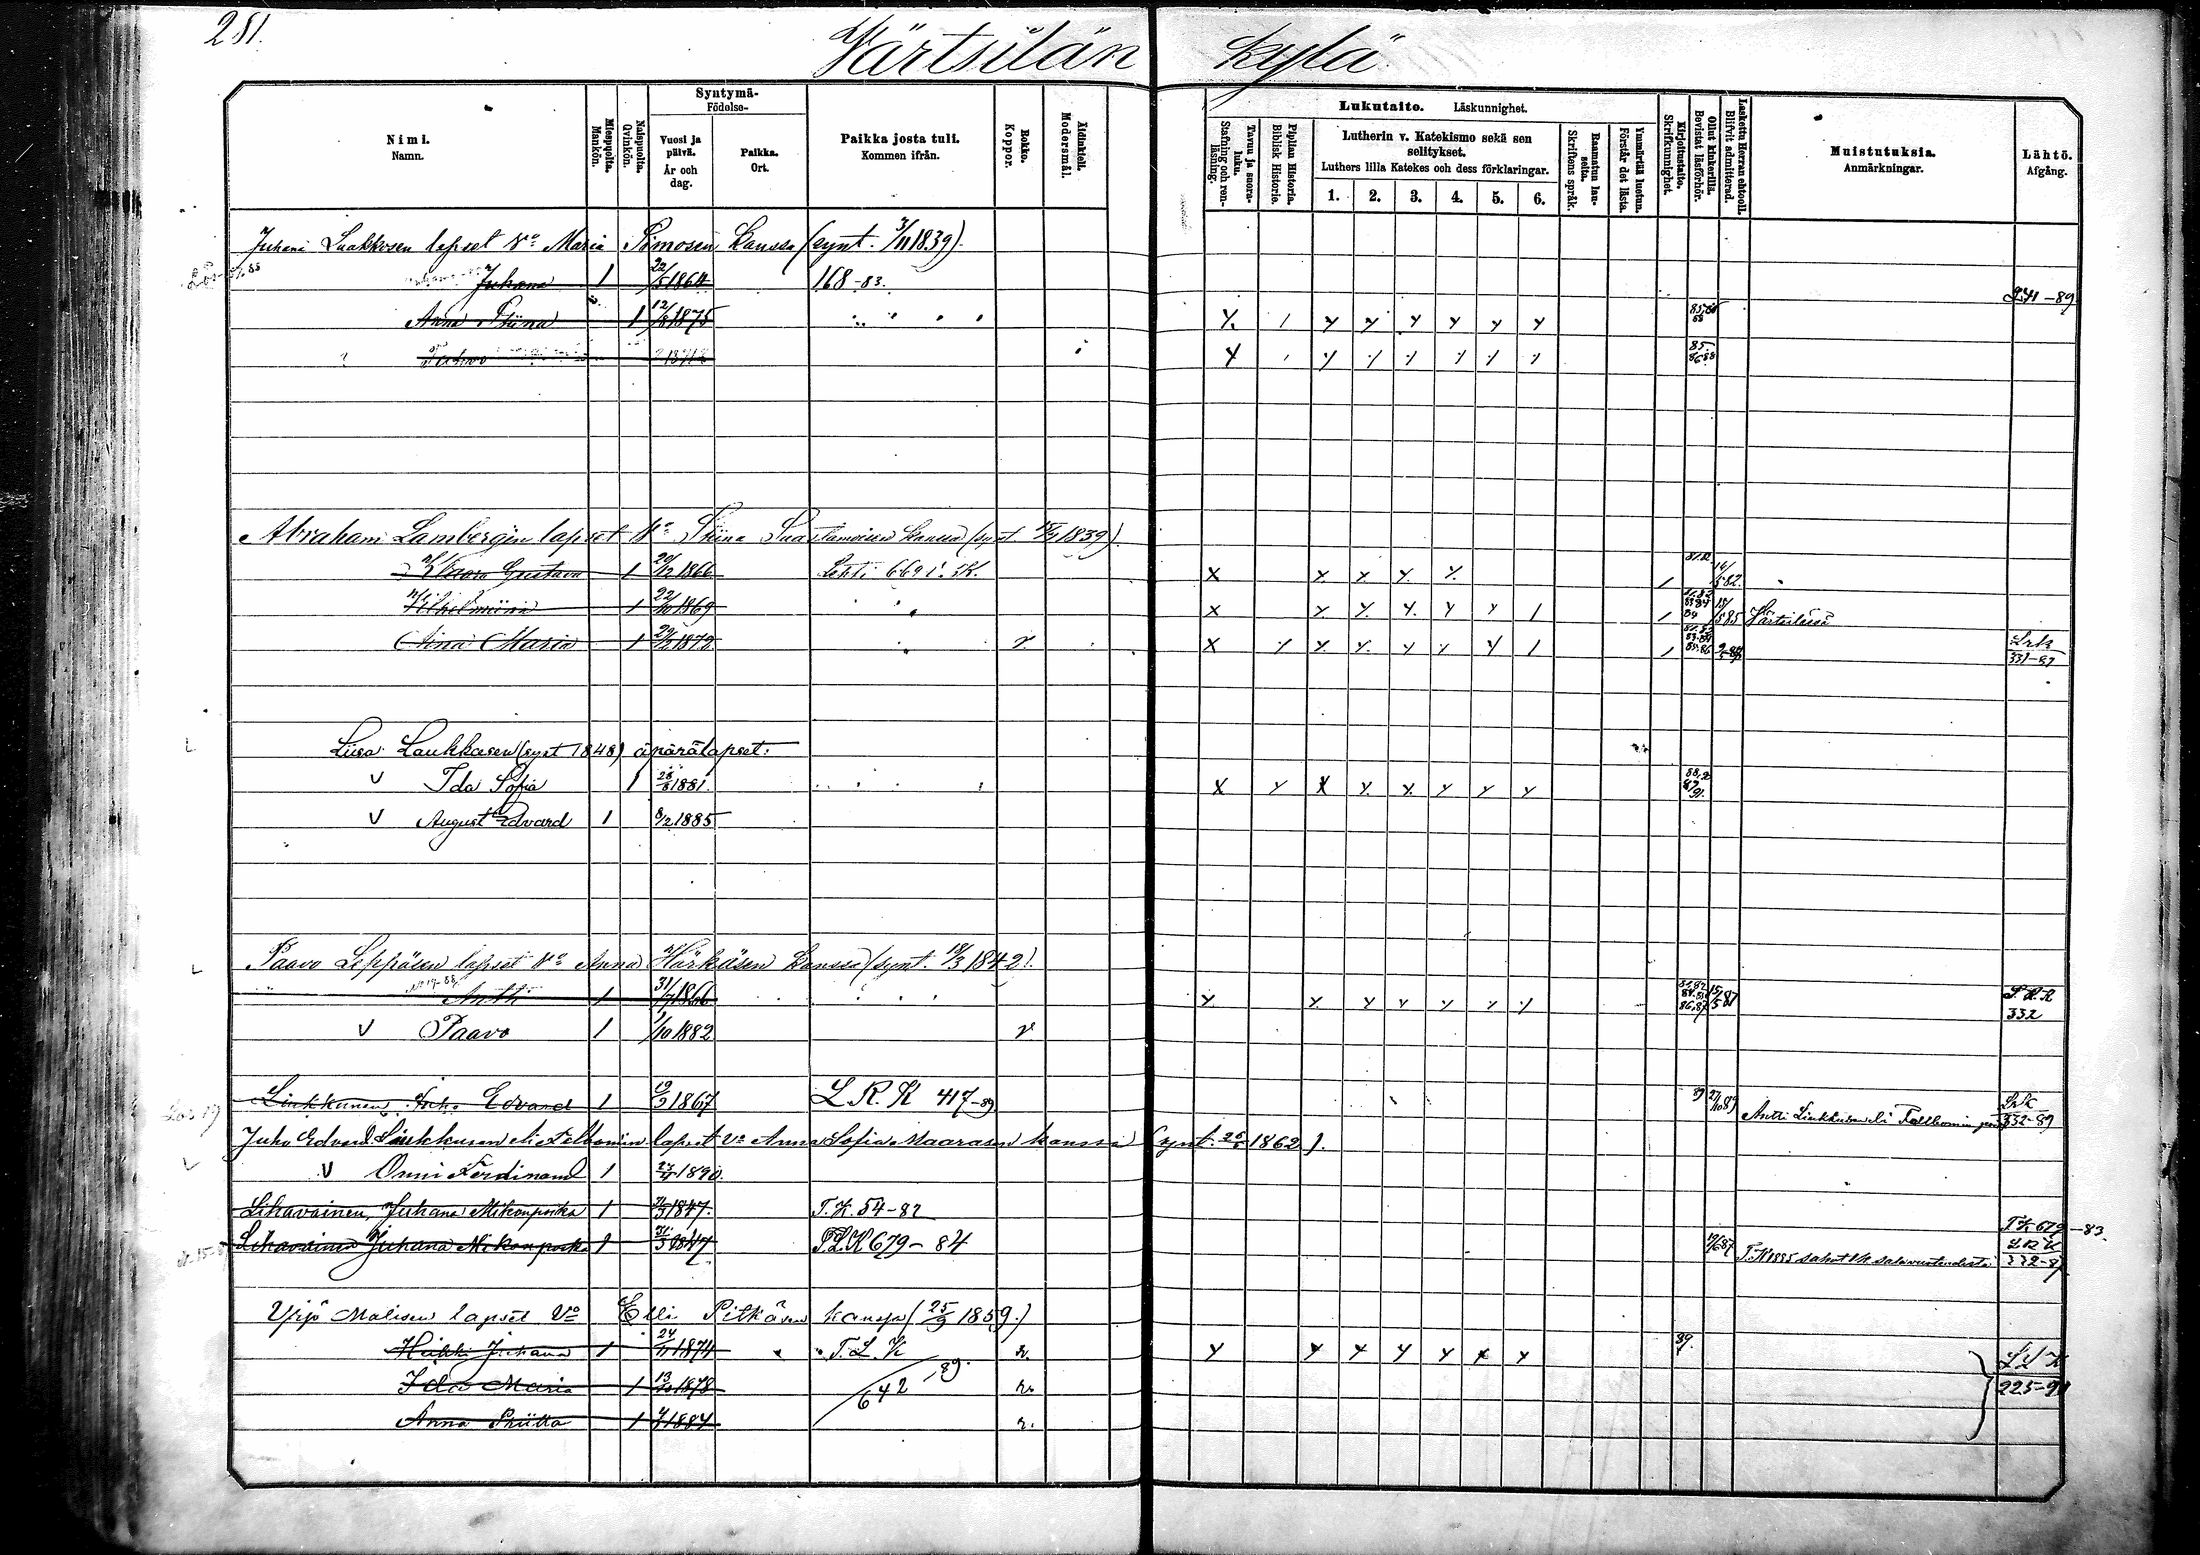 281.
Värtsilän kylä
Nimi.
Namn.
Miespuolia.
Mankön.
Naispuolia.
Qvinkön.
Syntymä-
Födelse-
Vuosi ja päivä.
År och dag.
Paikka.
Ort.
Paikka josta tuli.
Kommen ifrån.
Rokko.
Koppor.
Äidinkieli.
Modersmål.
Lukutaito. Läskunnighet.
Tavuu ja suoraluku.
Stafning och renläsning.
Piplian Historia.
Biblisk Historie.
Lutherin v. Katekismo sekä sen selitykset.
Luthers lilla Katekes och dess förklaringar.
1. 2. 3. 4. 5. 6.
Raamatun lauseita.
Skriftens språk.
Ymmärtää luetun.
Förstår det lästa.
Kirjoitustaito.
Skrifkunnighet.
Ollut kinkerillä.
Bevistat läsförhör.
Laskettu Herran ehtooll.
Blifvit admitterad.
Muistutuksia.
Anmärkningar.
Lähtö.
Afgång.
Juhana Laakkosen lapset Vo Maria Simosen kanssa (synt. 3/11 1839).
Juhana 1 22/5 1864 168-83.
Anna Stiina 1 12/8 1875 Y. 1 Y Y Y Y Y Y
Juhvo Y
Abraham Lambergin lapset Vo Stiina Saastamoisen kanssa (synt 1839)
Klaara Gustava 1 20/12 1866 Lehti 669 X Y. Y Y. Y. 1
Vilhelmiina 1 22/10 1869 X Y. Y. Y. Y Y 1 1 85 Värtsilässä
Aina Maria 1 22/2 1872 v X Y Y. Y. Y Y Y 1 1 Lrk
331-87
Liisa Laukkasen (synt 1848) äpärälapset:
v Ida Sofia 1 28/8 1881. X Y X Y. Y. Y Y Y
v August Edvard 1 8/2 1885
Paavo Leppäsen lapset Vo Anna Härkäsen kanssa (synt. 18/3 1842).
Antti 1 31/7 1866 Y Y. Y Y Y Y Y 15/5 87 L.R.K
332
v Paavo 1 1/10 1882 v
Linkkunen, Juho Edvard 1 19/3 1867 L.R.K 417-89 Antti Linkkusen eli Fellbomin Lrk
332-89
Juho Edvard Linkkusen eli Fellbomin lapset vo Anna Sofia Maarasen kanssa (synt. 1862).
v Onni Ferdinand 1 27/4 1890.
Lihavainen, Juhana Mikonpoika 1 31/3 1847. T.K. 54-82 T.K 679-83.
Lihavainen Juhana Mikonpoika 1 31/3 1847 P.L.K 679-84 L R K
332-87
Yrjö Malisen lapset Vo Elli Pitkäsen kanssa (25/9 1859.)
Heikki Juhana 1 24/11 1874 T.L.K r. Y Y Y Y Y Y Y 89.
Ida Maria 1 13/10 1878 642,89. r. 225-91
Anna Priitta 1 1884 r.